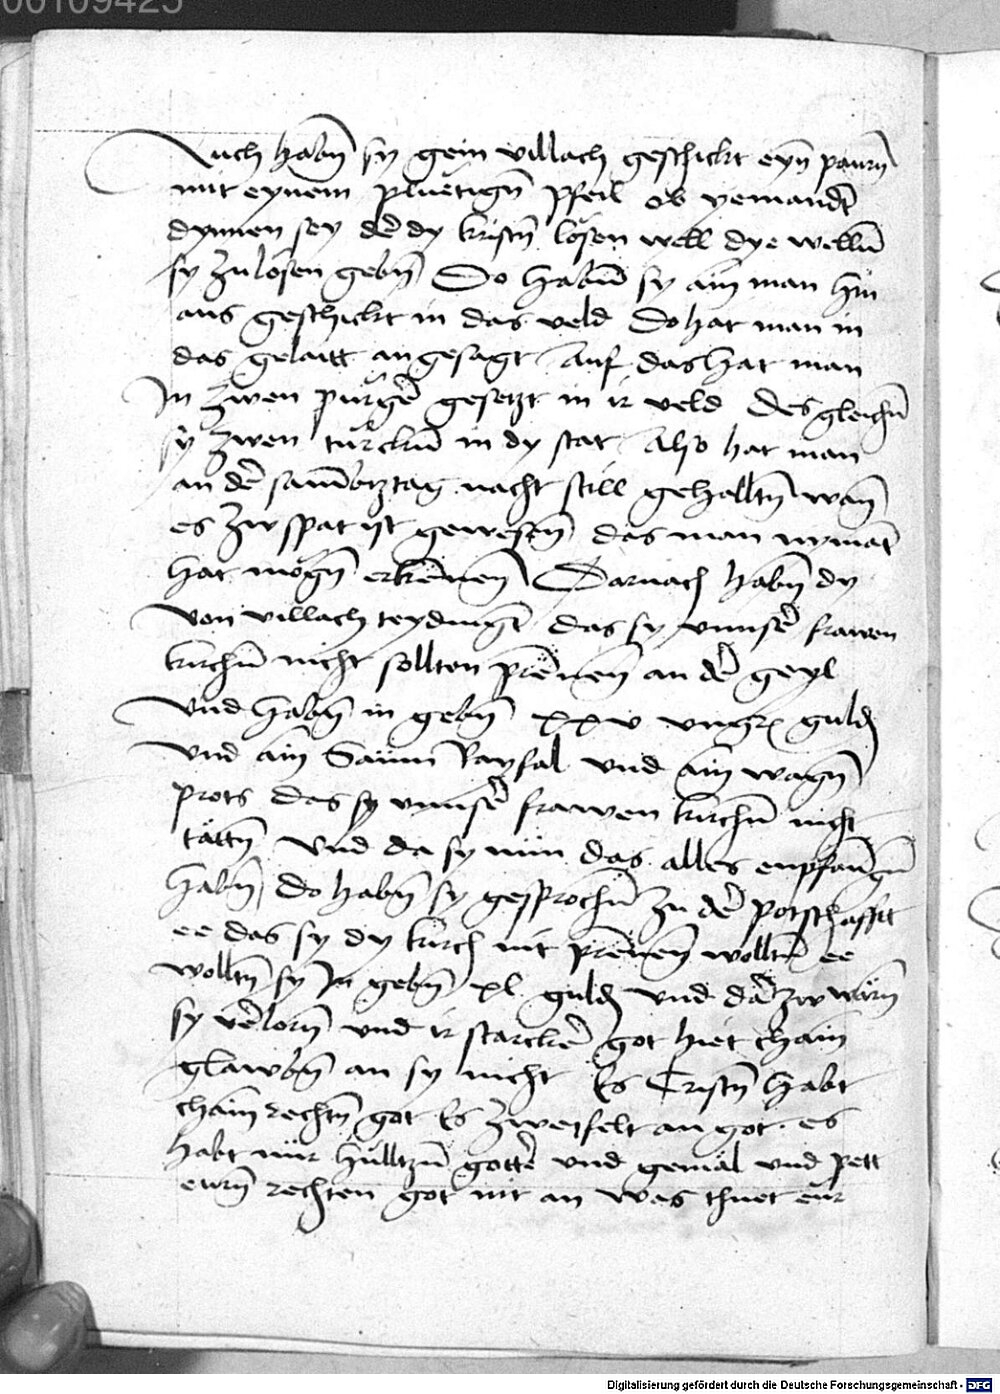 00109425
Auch habn̄ sy gein villach geschickt eyn̄ pawrn̄
mit eynem pluetign̄ pfeil ob yemandt
dynnen sey der dy kristn̄ lösen well dye welln̄
sy zu lösen gebn̄ Do habn̄ sy ain man hin
aus geschickt in das veld Do hat man in
das gelaitt angesagt Auf das hat man
In zwen purger gesetzt in ir veld Desgleichn̄
sy zwen türckn̄ in dy stat Also hat man
an der sambtztag nacht still gehalltn̄ wan̄
es zw spat ist gewesen̄ das man nymat
hat mögn̄ erkēnen̄ Darnach habn̄ dy
von villach teydingt das sy vnnser frawen
kirchn̄ nicht sollten prēnen̄ an der geyl
Vnd habn̄ in gebn̄ xxv vngr guldn̄
vnd ain Säum Rayfal vnd ain wagn̄
prots das sy vnnser frawen kirchn̄ nicht
tättn̄ Vnd da sy nün das alles enpfangn̄
habn̄ do habn̄ sy gesprochn̄ zu der potschafft
ee das sy dy kirch nit prēnen̄ wolltn̄ ee
wolltn̄ sy In gebn̄ xl guldn̄ vnd dar zw wärn̄
sy verlorn̄ vnd ir starcker got hiet chain
glawbn̄ an sy nicht Es Cristn̄ habt
chain rechtn̄ got Es zweifelt an got · es
habt nür hülltzn̄ götter vnd gemäl vnd pett
ewrn̄ rechten got nit an was thuet eür
Digitalisierung gefördert durch die Deutsche Forschungsgemeinschaft - DFG